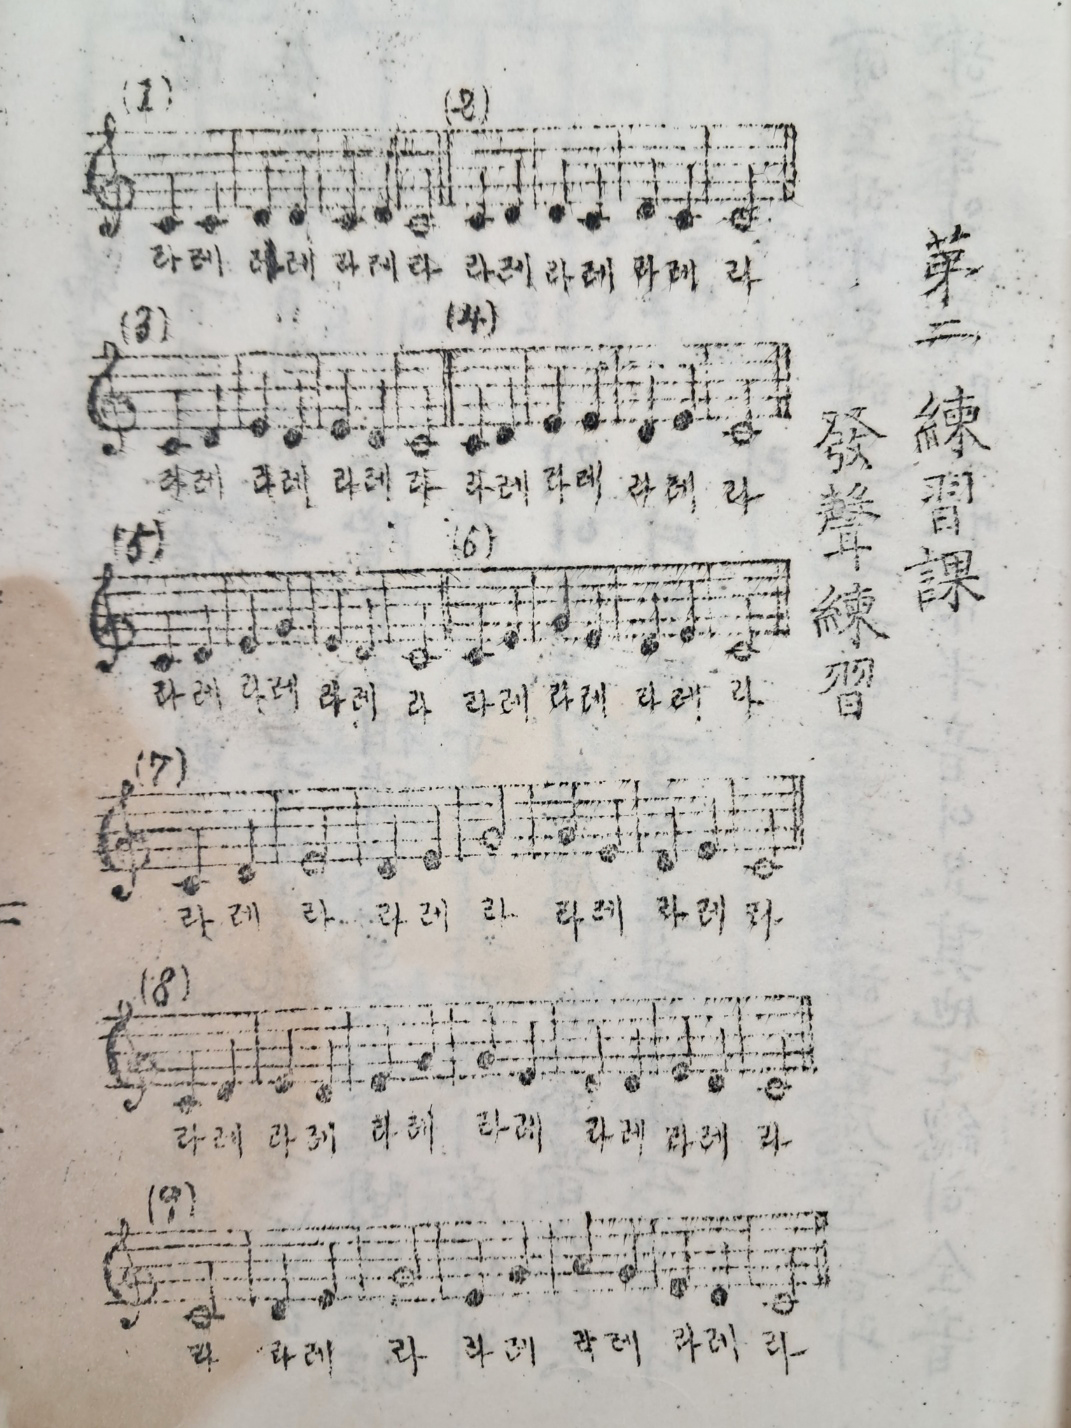 第二 練習課
發聲練習
(1) (2)
라레 레레 라레 라 라레 라레 라레 라
(3) (4)
라레 라레 라레 라 라레 라레 라레 라
(5) (6)
라레 라레 라레 라 라레 라레 라레 라
(7)
라레 라 라레 라 라레 라레 라
(8)
라레 라레 라레 라레 라레 라레 라
(9)
라 라레 라 라레 라레 라레 라